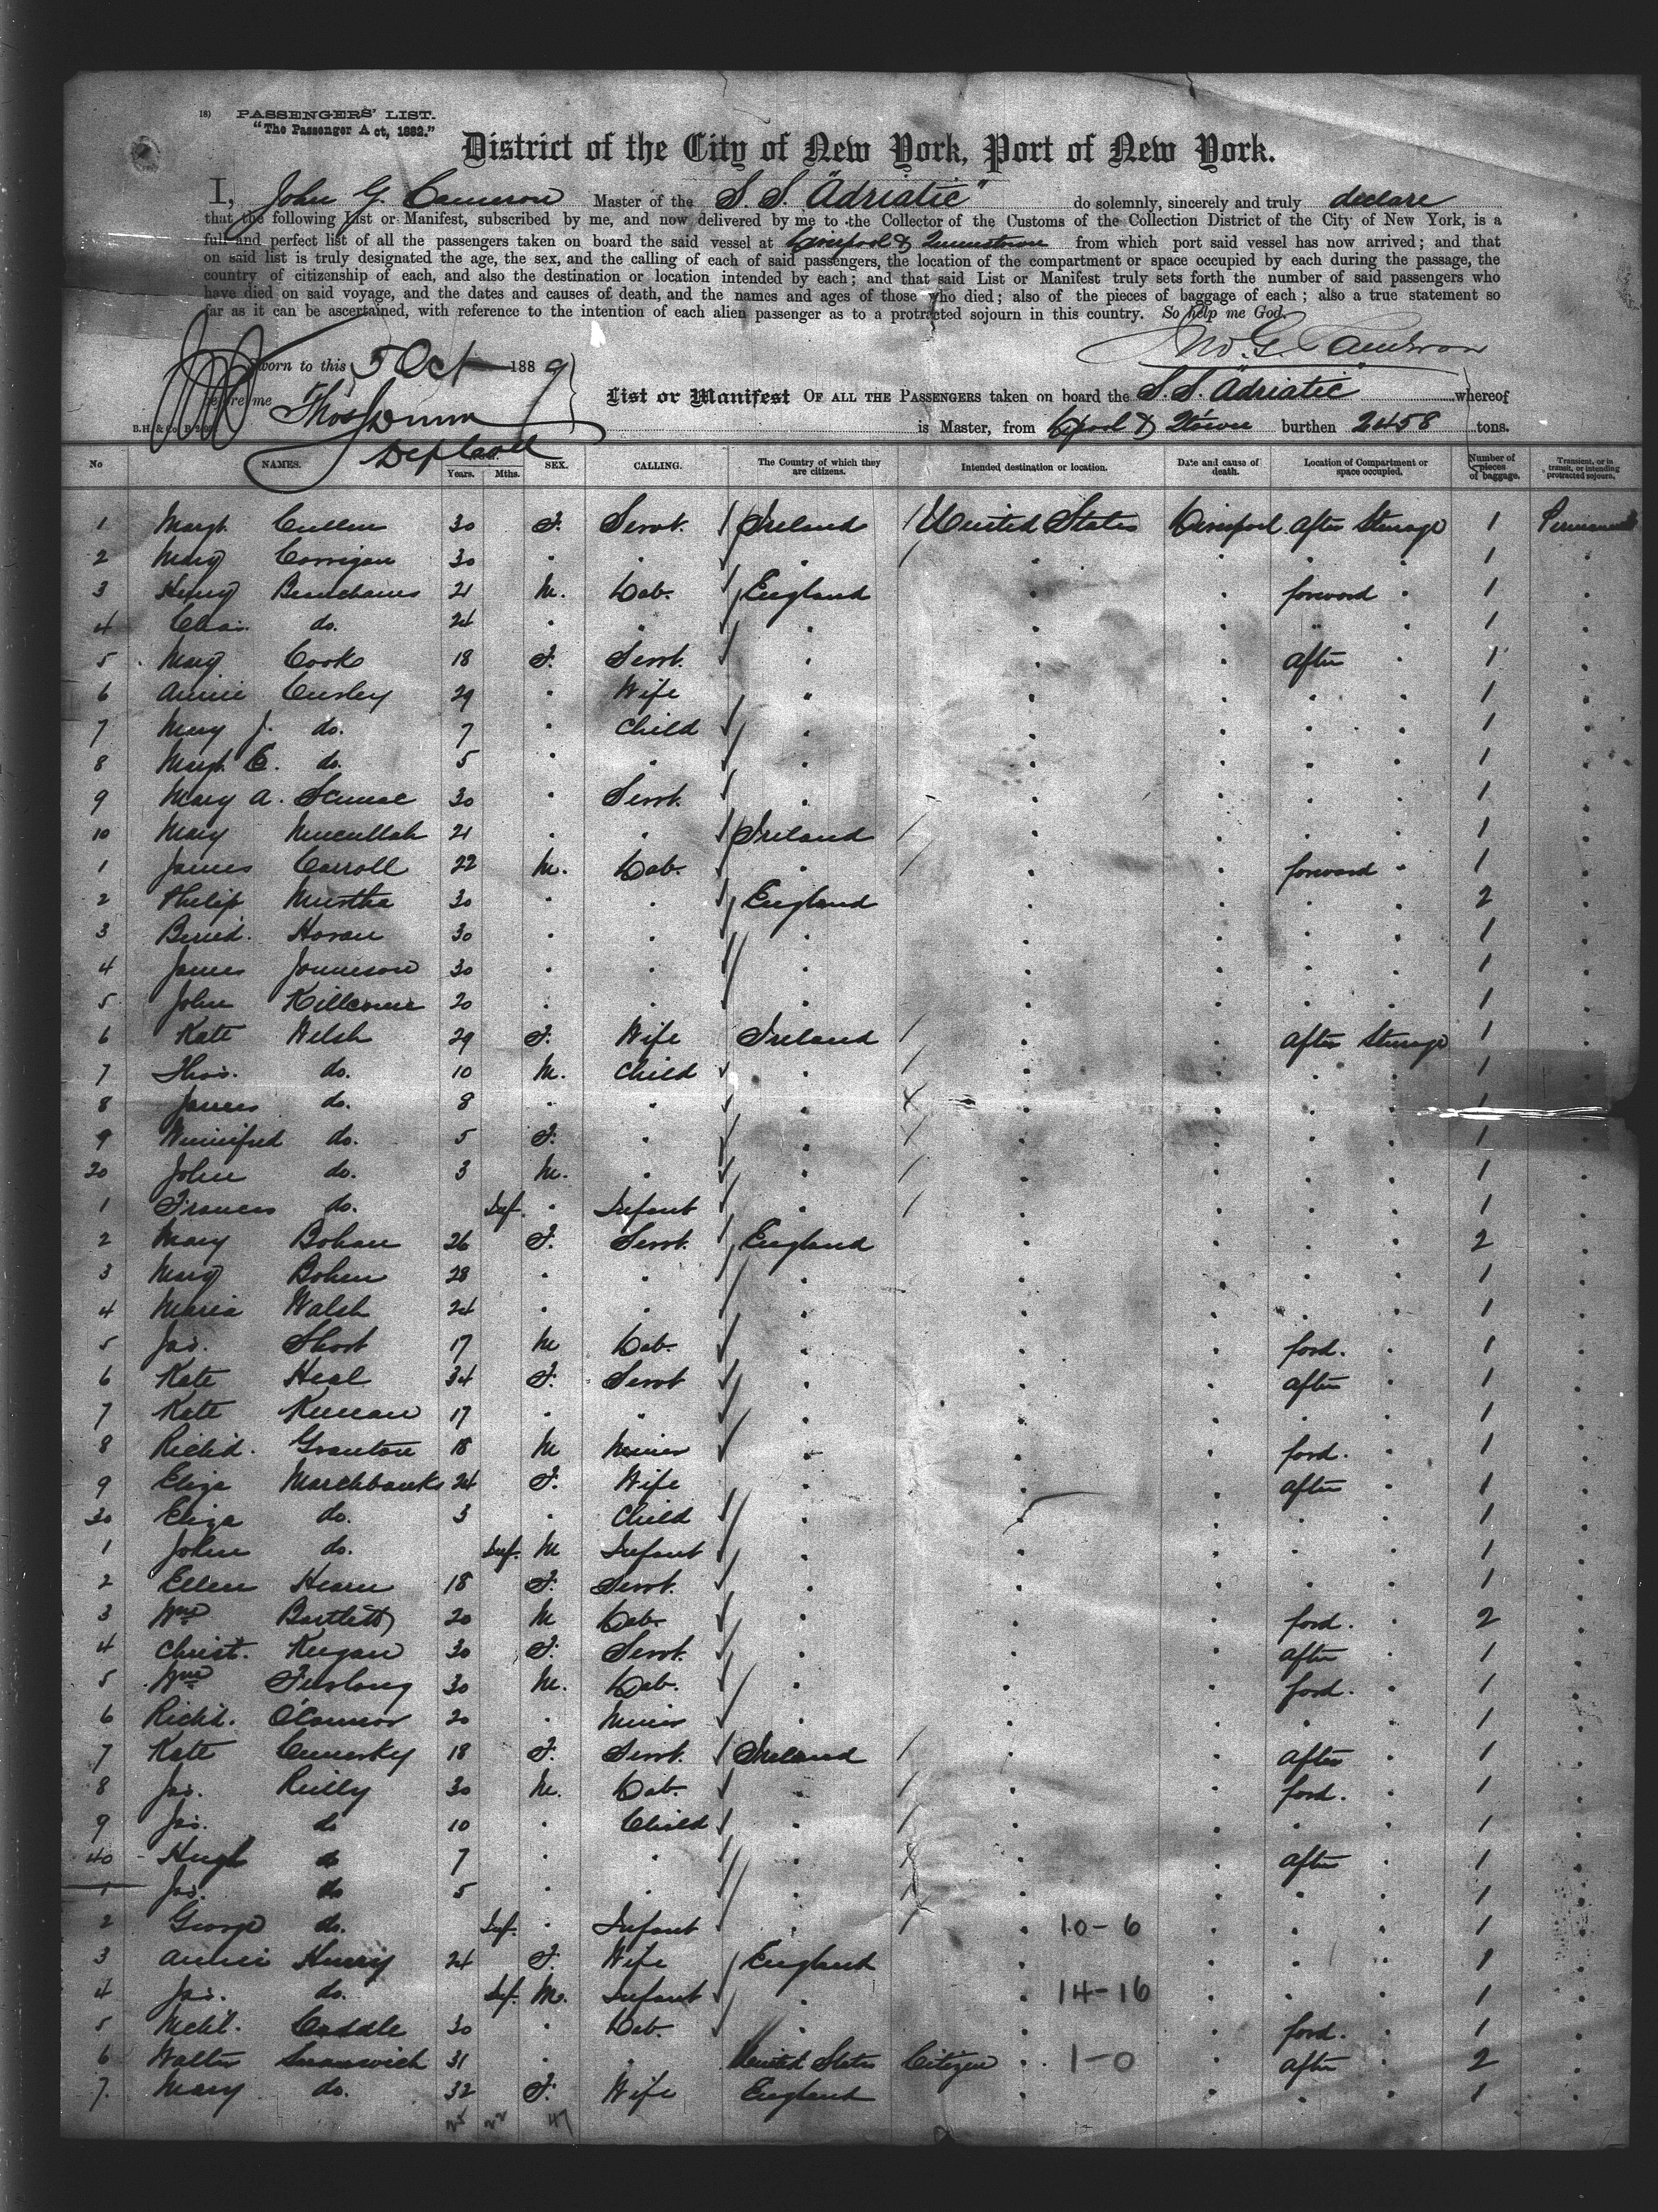 18) PASSENGERS' LIST.
"The Passenger Act, 1882."
District of the City of New York, Port of New York.
I, John G. Cameron Master of the S.S. "Adriatic" do solemnly, sincerely and truly declare
that the following List or Manifest, subscribed by me, and now delivered by me to the Collector of the Customs of the Collection District of the City of New York, is a
full and perfect list of all the passengers taken on board the said vessel at Liverpool & Queenstown from which port said vessel has now arrived; and that
on said list is truly designated the age, the sex, and the calling of each of said passengers, the location of the compartment or space occupied by each during the passage, the
country of citizenship of each, and also the destination or location intended by each; and that said List or Manifest truly sets forth the number of said passengers who
have died on said voyage, and the dates and causes of death, and the names and ages of those who died; also of the pieces of baggage of each; also a true statement so
far as it can be ascertained, with reference to the intention of each alien passenger as to a protracted sojourn in this country. So help me God.
Jno. G. Cameron
Sworn to this 5 Oct 1889
before me Thos Dunn
List or Manifest OF ALL THE PASSENGERS taken on board the S.S. "Adriatic" whereof
B.H. & Co.
is Master, from L'pool & Q'town burthen 2458 tons.
No NAMES. Years. Mths. SEX. CALLING. The Country of which they are citizens. Intended destination or location. Date and cause of death. Location of Compartment or space occupied. Number of pieces of baggage. Transient, or in transit, or intending protracted sojourn.
1 Margt. Cullen 30 F. Servt. Ireland United States Liverpool After Steerage 1 Permanent
2 Mary Corrigan 30 " " " " " " " 1 "
3 Henry Beauchamp 21 M. Lab. England " " forward " 1 "
4 Chas. do. 24 " " " " " " " 1 "
5 Mary Cook 18 F. Servt. " " " After " 1 "
6 Annie Cursley 29 " Wife " " " " " 1 "
7 Mary J. do. 7 " Child " " " " " 1 "
8 Margt. E. do. 5 " " " " " " " 1 "
9 Mary A. 30 " Servt. " " " " " 1 "
10 Mary 21 " " Ireland " " " " 1 "
1 James Carroll 22 M. Lab. " " " forward " 1 "
2 Philip Murtha 30 " " England " " " " 2 "
3 Bernd. Horan 30 " " " " " " " 1 "
4 James Jamieson 30 " " " " " " " 1 "
5 John 20 " " " " " " " 1 "
6 Kate Welsh 29 F. Wife Ireland " " After Steerage 1 "
7 Thos. do. 10 M. Child " " " " " 1 "
8 James do. 8 " " " " " " " 1 "
9 Winnifred do. 5 F. " " " " " " 1 "
20 John do. 3 M. " " " " " " 1 "
1 Francis do. Inf. " Infant " " " " " 1 "
2 Mary Bohan 26 F. Servt. England " " " " 2 "
3 Mary Bohen 28 " " " " " " " 1 "
4 Maria Walsh 24 " " " " " " " 1 "
5 Jas. Short 17 M Lab. " " " ford. " 1 "
6 Kate Heal 34 F. Servt " " " After " 1 "
7 Kate Keenan 17 " " " " " " " 1 "
8 Richd. Granton 18 M Miner " " " ford. " 1 "
9 Eliza Marchbanks 24 F. Wife " " " After " 1 "
30 Eliza do. 3 " Child " " " " " 1 "
1 John do. Inf. M Infant " " " " " 1 "
2 Ellen Hearn 18 F. Servt. " " " " " 1 "
3 Wm. Bartlett 20 M Lab. " " " ford. " 2 "
4 Christ. Keegan 30 F. Servt. " " " After " 1 "
5 Wm. Furlong 30 M. Lab. " " " ford. " 1 "
6 Richd. O'Connor 20 " Miner " " " " " 1 "
7 Kate 18 F. Servt. Ireland " " After " 1 "
8 Jas. Reilly 30 M. Lab. " " " ford. " 1 "
9 Jas. do 10 " Child " " " " " 1 "
40 Hugh do 7 " " " " " After " 1 "
1 Jas. do 5 " " " " " " " 1 "
2 George do. Inf. " Infant " " 10-6 " " " 1 "
3 Annie Henry 24 F. Wife England " " " " 1 "
4 Jas. do. Inf. M. Infant " " 14-16 " " " 1 "
5 Michl. Caddle 30 " Lab. " " " ford. " 1 "
6 Walter 31 " " United States Citizen " 1-0 " After " 2 "
7 Mary do. 32 F. Wife England " " " " 1 "
25 22 47